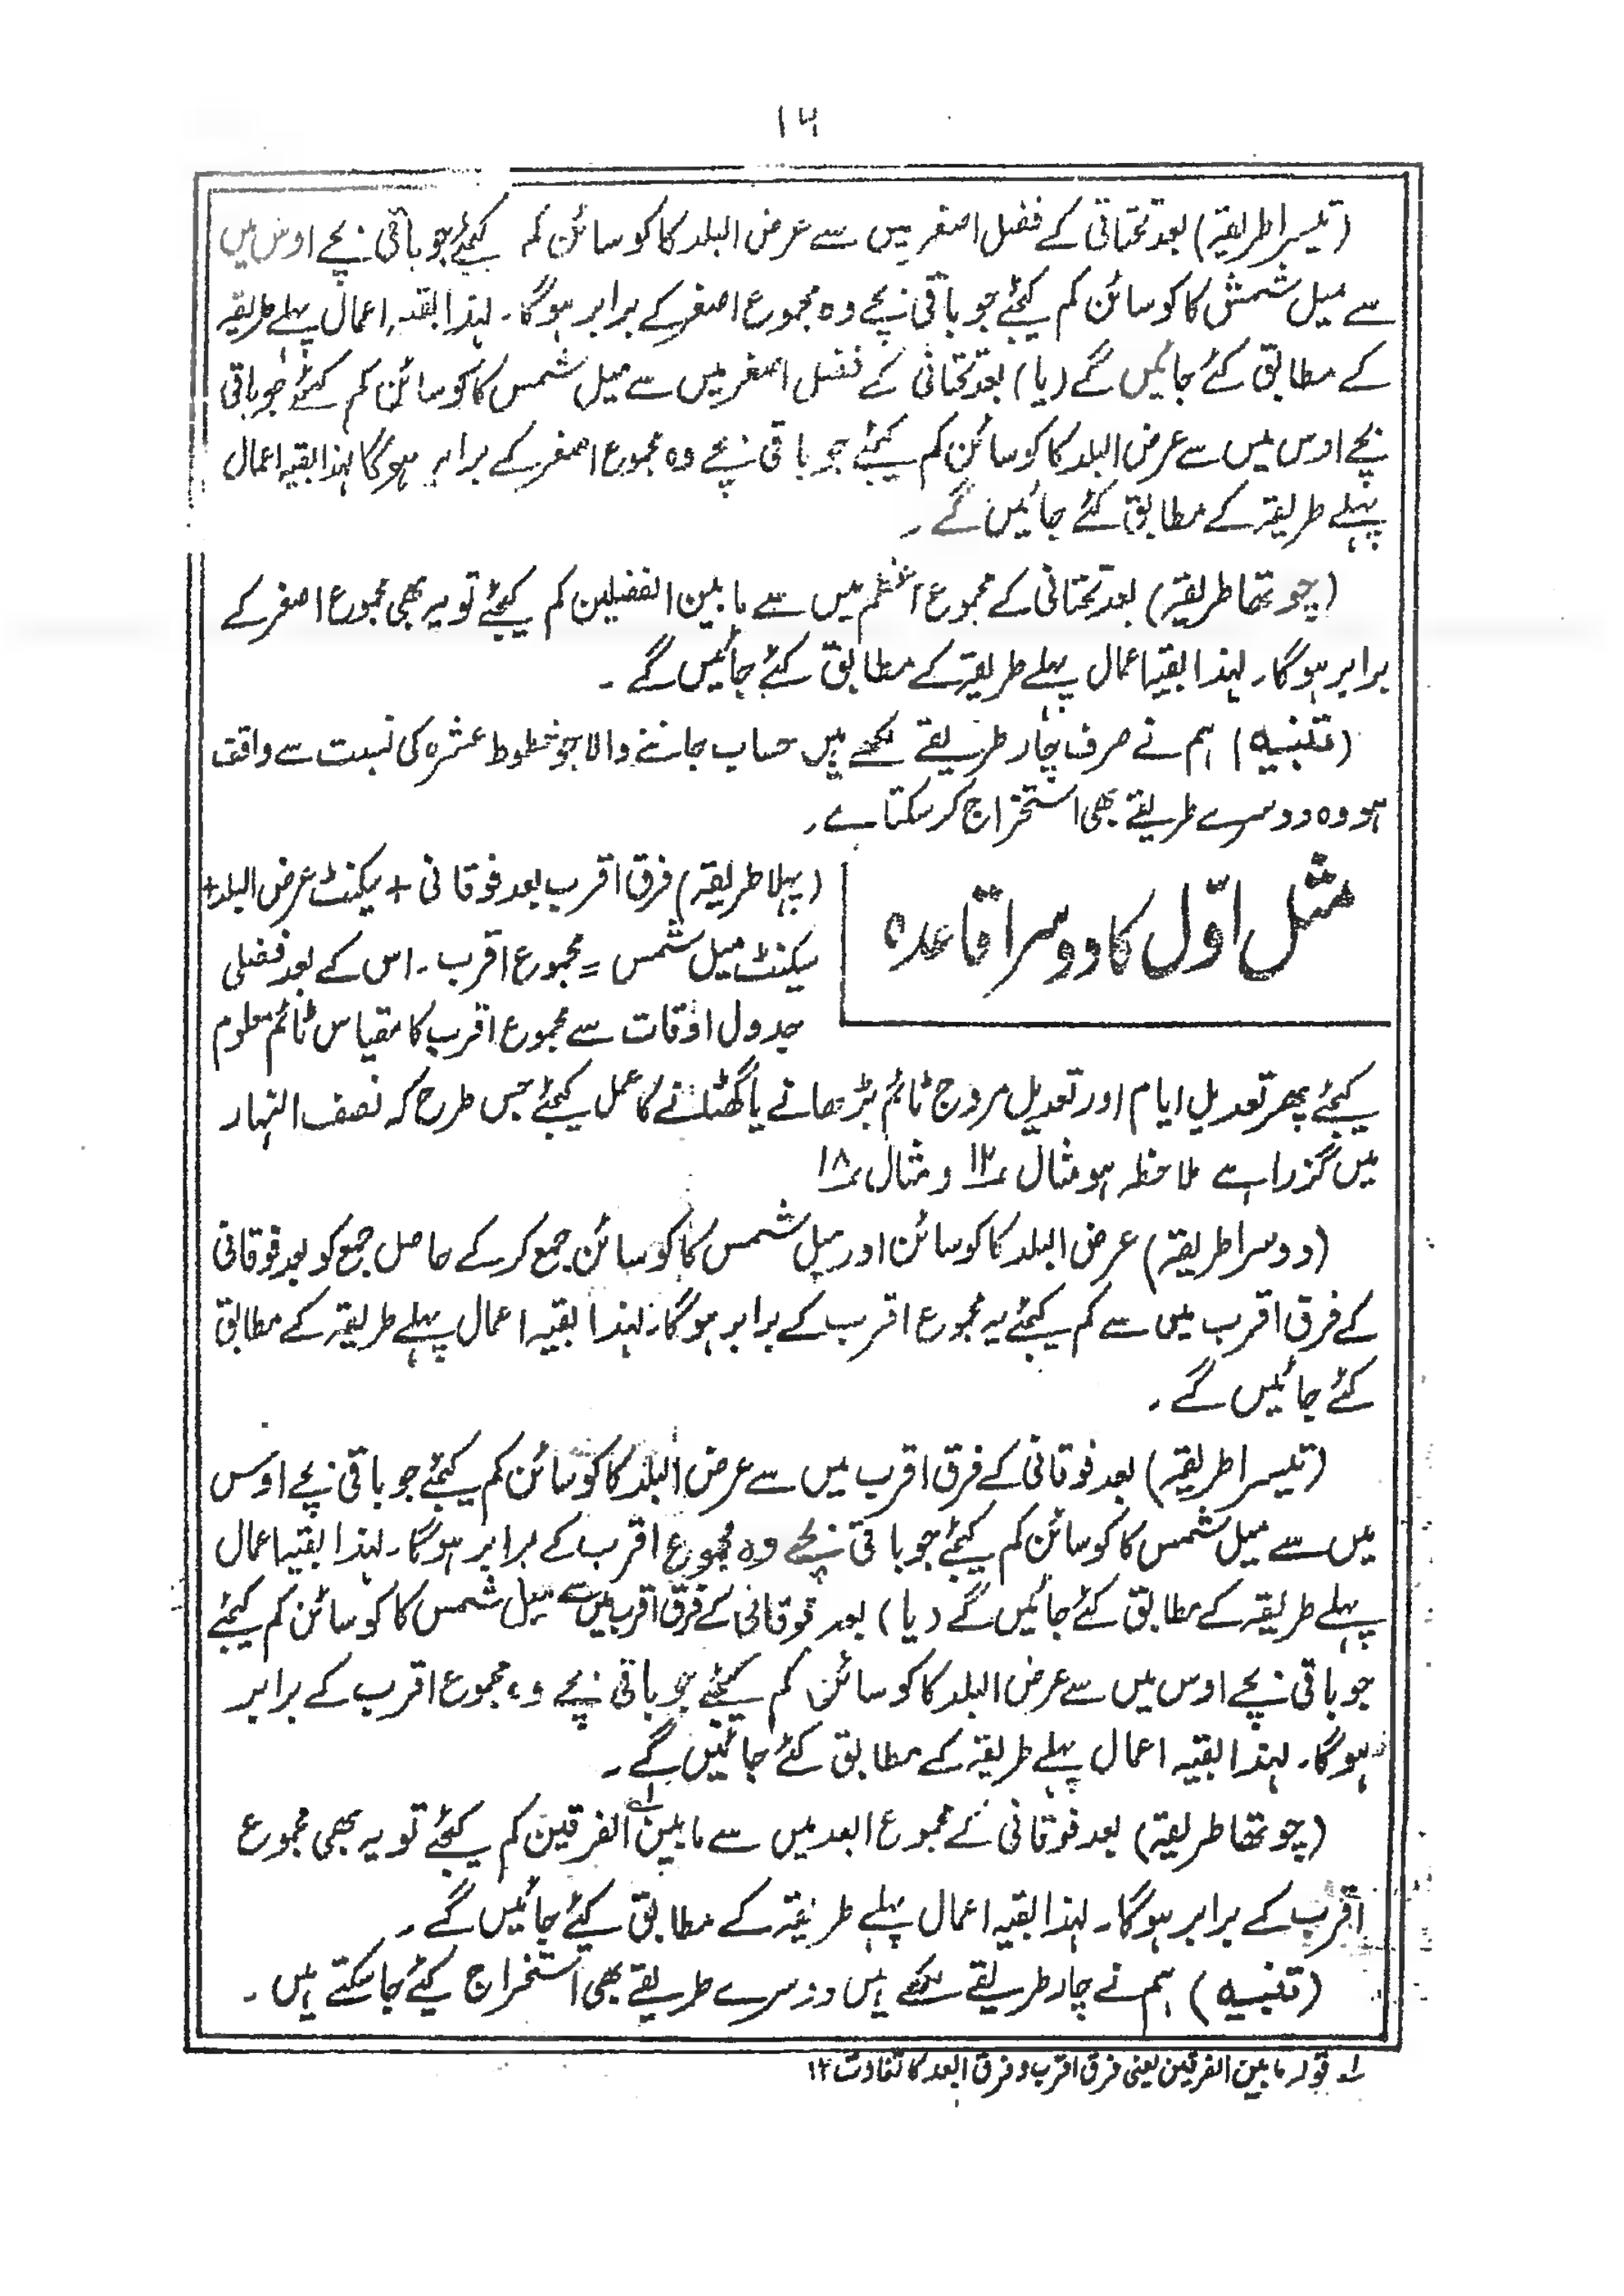 ۱۶
(تیسرا طریقہ) بعد تحتانی کے فضل اصغر میں سے عرض البلد کا کو سائن کم کیجئے جو باقی بچے اوس میں
سے میل شمش کا کو سائن کم کیجئے جو باقی بچے وہ مجموع اصغر کے برابر ہوگا۔ لہذا بقیہ اعمال پہلے طریقہ
کے مطابق کئے جائیں گے (یا) بعد تحتانی کے فضل اصغر میں سے میل شمس کا کو سائن کم کیجئے جو باقی
بچے اوس میں سے عرض البلد کا کو سائن کم کیجئے جو باقی بچے وہ مجموع اصغر کے برابر ہوگا لہذا بقیہ اعمال
پہلے طریقہ کے مطابق کئے جائیں گے۔
(چوتھا طریقہ) بعد تحتانی کے مجموع اعظم میں سے مابین الفضلین کم کیجئے تو یہ بھی مجموع اصغر کے
برابر ہوگا۔ لہذا بقیہ اعمال پہلے طریقہ کے مطابق کئے جائیں گے۔
(تنبیہ) ہم نے صرف چار طریقے لکھے ہیں حساب جاننے والا جو خطوط عشرہ کی نسبت سے واقف
ہو وہ دوسرے طریقے بھی استخراج کر سکتا ہے۔
مثل اوّل کا دوسرا قاعدہ
(پہلا طریقہ) فرق اقرب بعد فوقانی + سیکنٹ عرض البلد +
سیکنٹ میل شمس = مجموع اقرب۔ اس کے بعد فضلی
جدول اوقات سے مجموع اقرب کا مقیاس ٹائم معلوم
کیجئے پھر تعدیل ایام اور تعدیل مروج ٹائم بڑھانے یا گھٹانے کا عمل کیجئے جس طرح کہ نصف النہار
میں گزرا ہے ملاحظہ ہو مثال ۱۲ و مثال ۱۸
(دوسرا طریقہ) عرض البلد کا کو سائن اور میل شمس کا کو سائن جمع کر کے حاصل جمع کو بعد فوقانی
کے فرق اقرب میں سے کم کیجئے یہ مجموع اقرب کے برابر ہوگا، لہذا بقیہ اعمال پہلے طریقہ کے مطابق
کئے جائیں گے۔
(تیسرا طریقہ) بعد فوقانی کے فرق اقرب میں سے عرض البلد کا کو سائن کم کیجئے جو باقی بچے اوس
میں سے میل شمس کا کو سائن کم کیجئے جو باقی بچے وہ مجموع اقرب کے برابر ہوگا۔ لہذا بقیہ اعمال
پہلے طریقہ کے مطابق کئے جائیں گے (یا) بعد فوقانی کے فرق اقرب میں سے میل شمس کا کو سائن کم کیجئے
جو باقی بچے اوس میں سے عرض البلد کا کو سائن کم کیجئے جو باقی بچے وہ مجموع اقرب کے برابر
ہوگا۔ لہذا بقیہ اعمال پہلے طریقہ کے مطابق کئے جائیں گے۔
(چوتھا طریقہ) بعد فوقانی کے مجموع ابعد میں سے مابین الفرقین لہ کم کیجئے تو یہ بھی مجموع
اقرب کے برابر ہوگا۔ لہذا بقیہ اعمال پہلے طریقہ کے مطابق کیئے جائیں گے۔
(تنبیہ) ہم نے چار طریقے لکھے ہیں دوسرے طریقے بھی استخراج کیئے جا سکتے ہیں۔
لہ قولہ مابین الفرقین یعنی فرق اقرب و فرق ابعد کا تفاوت ۱۲